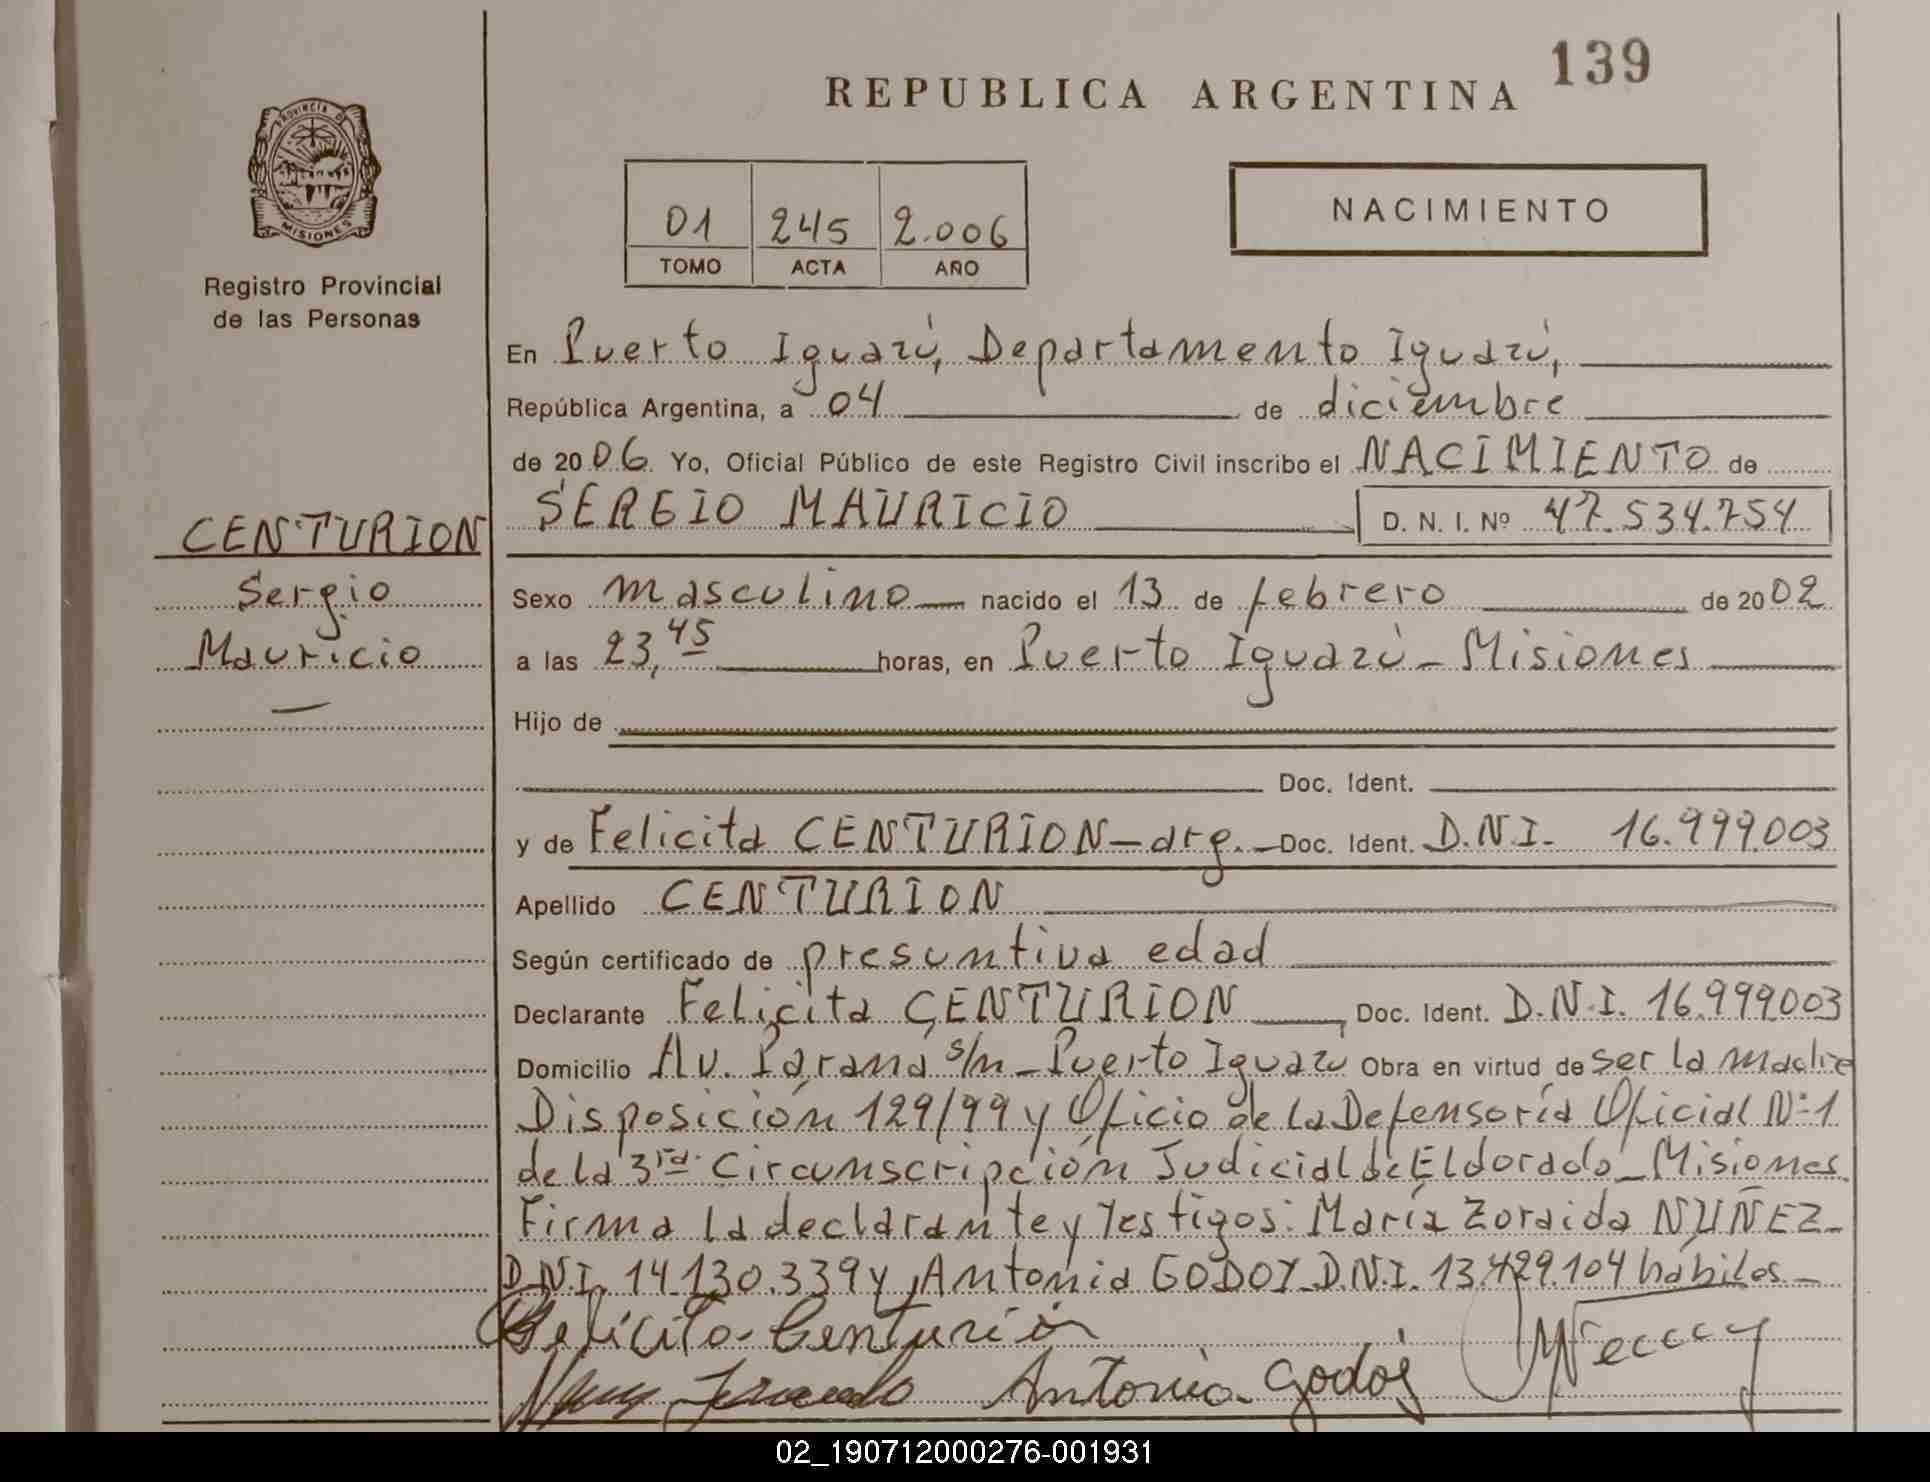 139
REPUBLICA ARGENTINA
PROVINCIA D
MISIONES
Registro Provincial
de las Personas
01 245 2.006
TOMO ACTA AÑO
NACIMIENTO
En Puerto Iguazú, Departamento Iguazú,
República Argentina, a 04 de diciembre
de 20 06. Yo, Oficial Público de este Registro Civil inscribo el NACIMIENTO de
SERGIO MAURICIO D. N. I. Nº 47.534.754
CENTURION
Sergio
Mauricio
Sexo masculino nacido el 13 de febrero de 20 02
a las 23,45 horas, en Puerto Iguazú - Misiones
Hijo de
Doc. Ident.
y de Felicita CENTURION - arg. - Doc. Ident. D.N.I. 16.999.003
Apellido CENTURION
Según certificado de presuntiva edad
Declarante Felicita CENTURION Doc. Ident. D.N.I. 16.999.003
Domicilio Av. Paraná s/n - Puerto Iguazú Obra en virtud de ser la madre
Disposición 129/99 y Oficio de la Defensoría Oficial Nº 1
de la 3ra. Circunscripción Judicial de Eldorado - Misiones.
Firma la declarante y Testigos: María Zoraida NUÑEZ -
D.N.I. 14.130.339 y Antonia GODOY D.N.I. 13.429.104 hábiles -
Felicita Centurión
Antonia Godoy
02_190712000276-001931